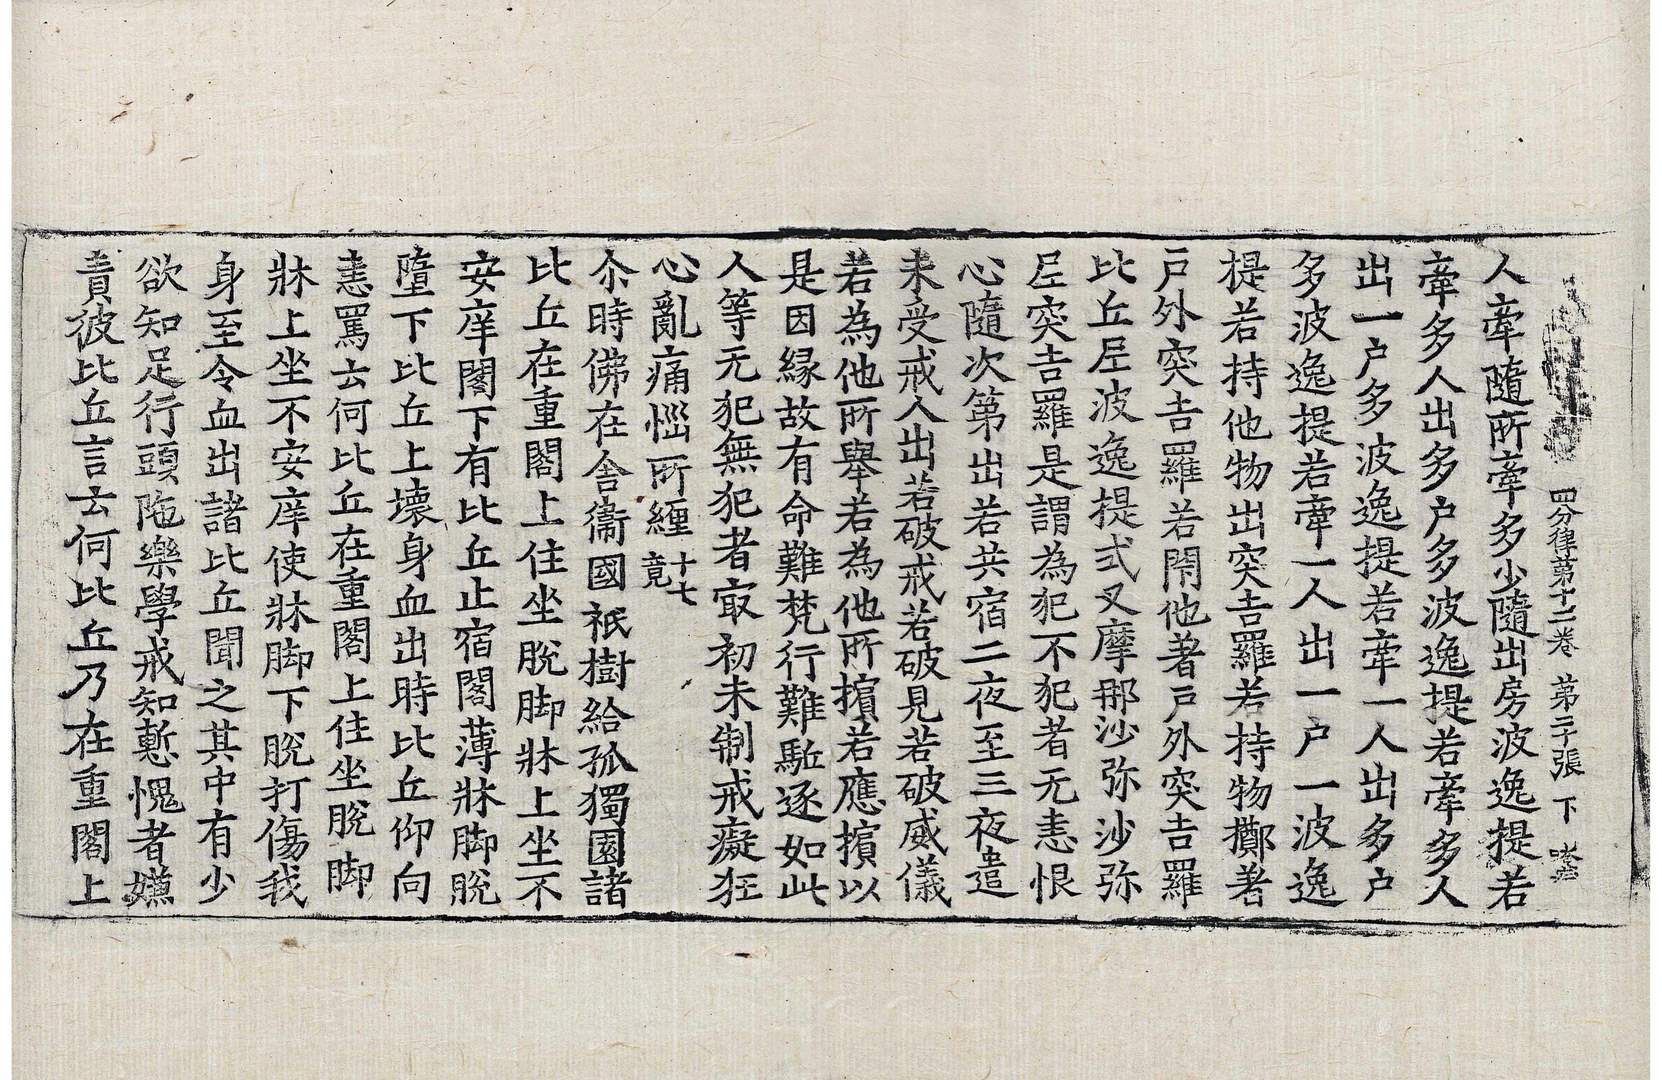 四分律第十二卷 第二十張 下
人牽隨所牽多少隨出房波逸提若
牽多人出多户多波逸提若牽多人
出一户多波逸提若牽一人出多户
多波逸提若牽一人出一户一波逸
提若持他物出突吉羅若持物擲著
户外突吉羅若閇他著户外突吉羅
比丘尼波逸提式叉摩那沙弥沙弥
尼突吉羅是謂為犯不犯者无恚恨
心隨次第出若共宿二夜至三夜遣
未受戒人出若破戒若破見若破威儀
若為他所舉若為他所擯若應擯以
是因縁故有命難梵行難駈逐如此
人等无犯無犯者㝡初未制戒癡狂
心亂痛惱所纏十七竟
尒時佛在舎衞國祇樹給孤獨園諸
比丘在重閣上住坐脫脚牀上坐不
安庠閣下有比丘止宿閣薄牀脚脫
墮下比丘上壞身血出時比丘仰向
恚罵云何比丘在重閣上住坐脫脚
牀上坐不安庠使牀脚下脫打傷我
身至令血出諸比丘聞之其中有少
欲知足行頭陁樂學戒知慙愧者嫌
責彼比丘言云何比丘乃在重閣上